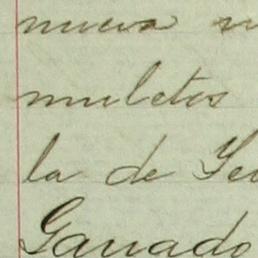 nueva
muletos
la de
Ganado